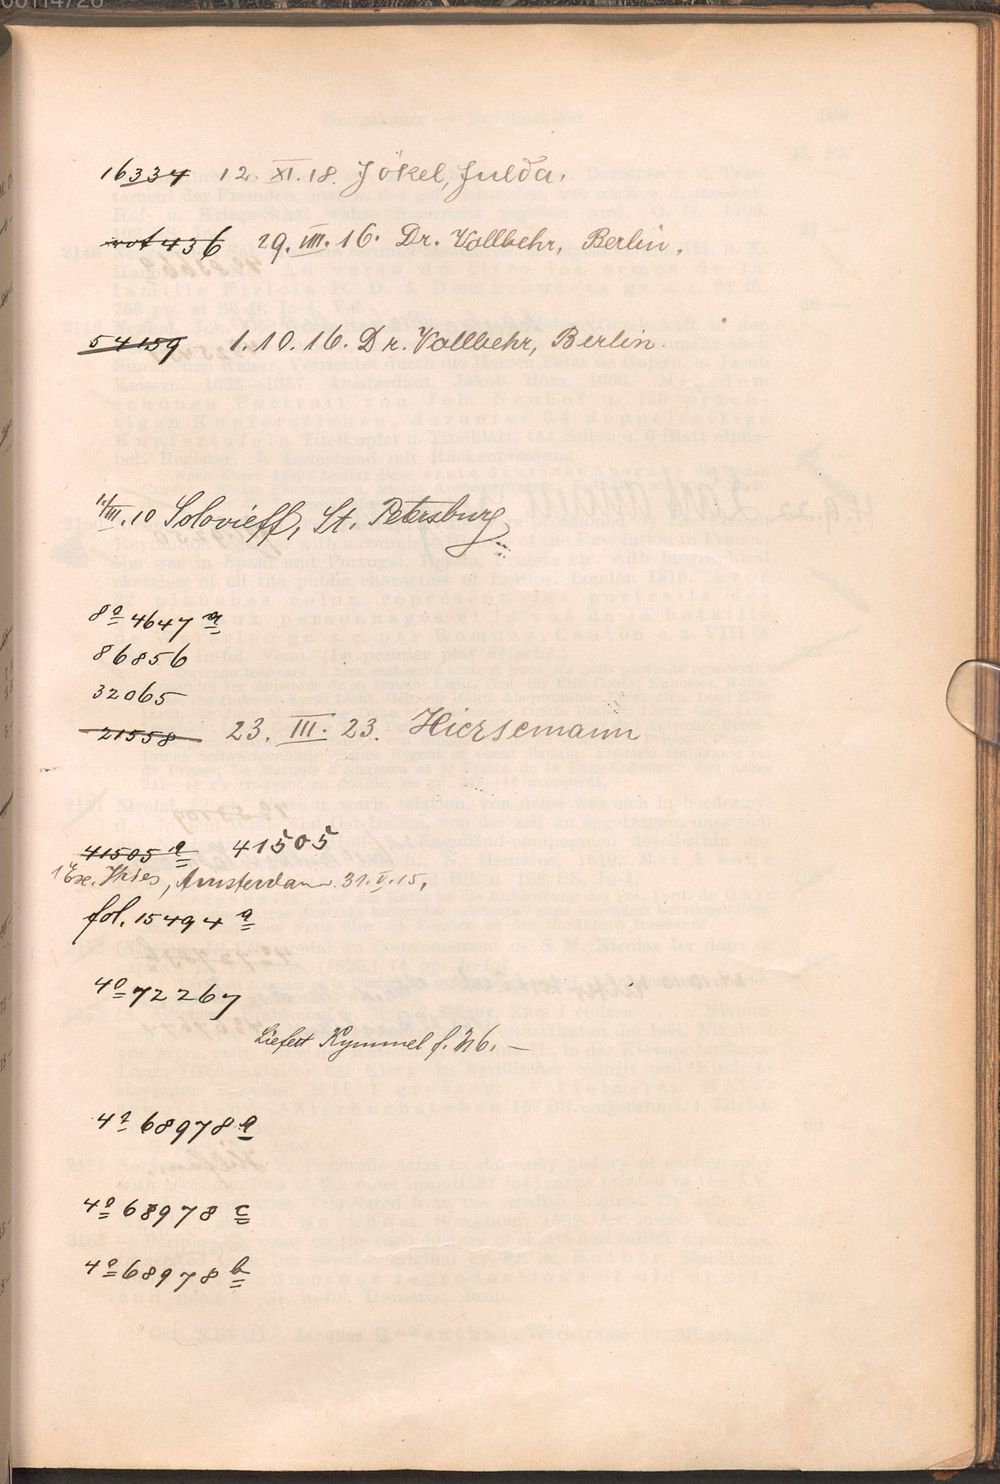 16334 12. XI. 18. Jökel, Fulda.
rot 436 29. III. 16. Dr. Vollbehr, Berlin.
54159 1. 10. 16. Dr. Vollbehr, Berlin.
11/III. 10 Solovieff, St. Petersburg
8º 4647 a
86856
32065
21558 23. III. 23. Hiersemann
41505 a 41505
1 Ex. Vries, Amsterdam 31. V. 15.
fol. 15494 a
4º 72267
Liefert Kymmel f. 26. —
4º 68978 a
4º 68978 c
4º 68978 b